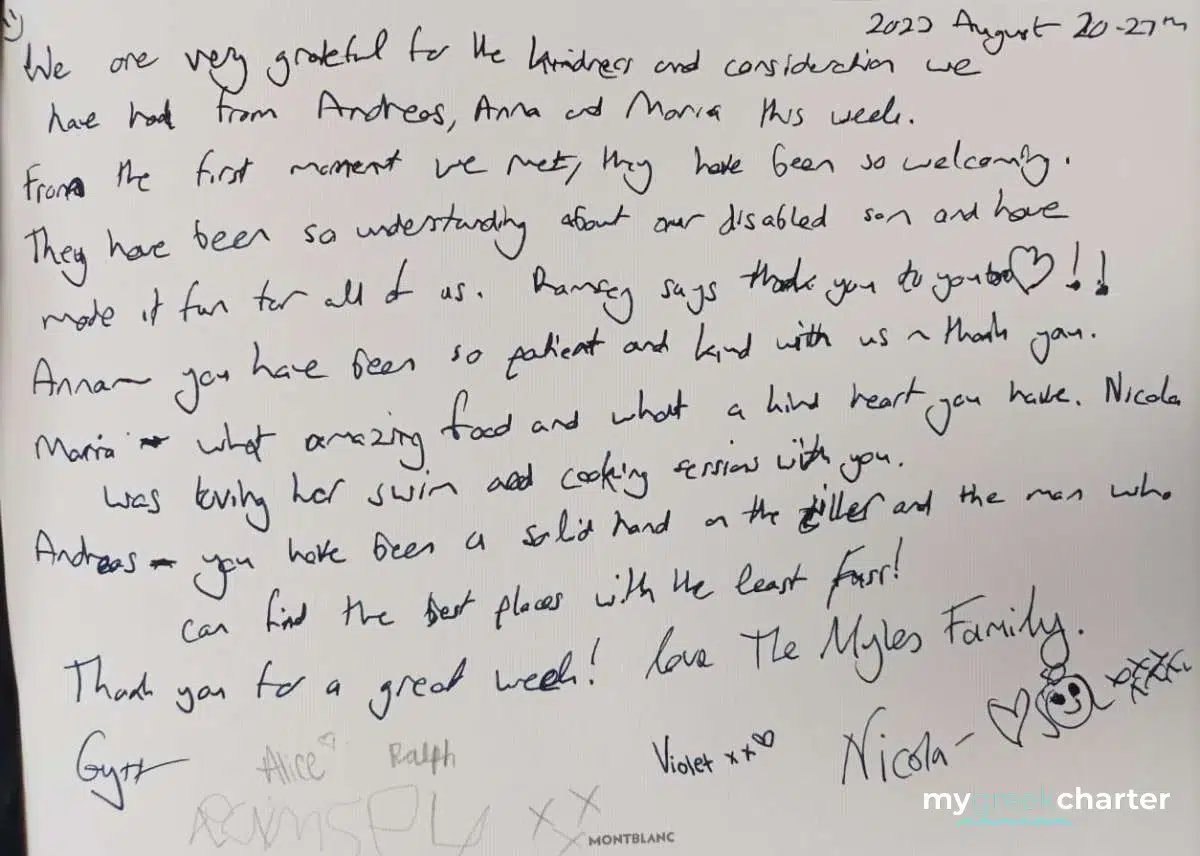 2023 August 20-27th
We are very grateful for the kindness and consideration we
have had from Andreas, Anna and Maria this week.
From the first moment we met, they have been so welcoming.
They have been so understanding about our disabled son and have
made it fun for all of us. Ramsey says thank you to you too ♡!!
Anna – you have been so patient and kind with us ~ thank you.
Maria – what amazing food and what a kind heart you have. Nicola
was loving her swim and cooking sessions with you.
Andreas – you have been a solid hand on the tiller and the man who
can find the best places with the least fuss!
Thank you for a great week! love The Myles Family.
Alice♡ Ralph Violet xx♡ Nicola – ♡
RAMSEY xxx
MONTBLANC
mygreekcharter